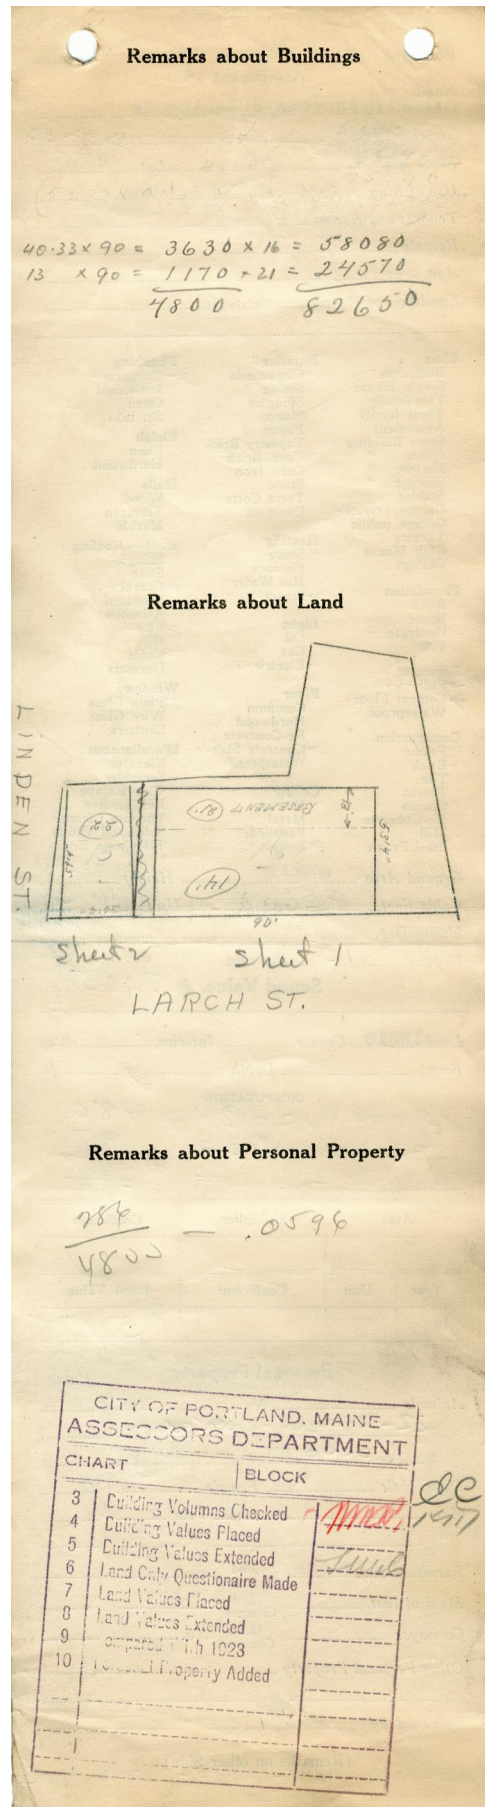 Remarks about Buildings
40.33 x 90 = 3630 x 16 = 58080
13 x 90 = 1170 x 21 = 24570
4800 82650
Remarks about Land
LINDEN ST.
BASEMENT
13'
53'4"
14'
90'
Sheet 2 Sheet 1
LARCH ST.
Remarks about Personal Property
286
4800 — .0596
CITY OF PORTLAND, MAINE
ASSESSORS DEPARTMENT
CHART BLOCK
3 Building Volumns Checked
4 Building Values Placed
5 Building Values Extended
6 Land Only Questionaire Made
7 Land Values Placed
8 Land Values Extended
9 ompared With 1923
10 Personal Property Added